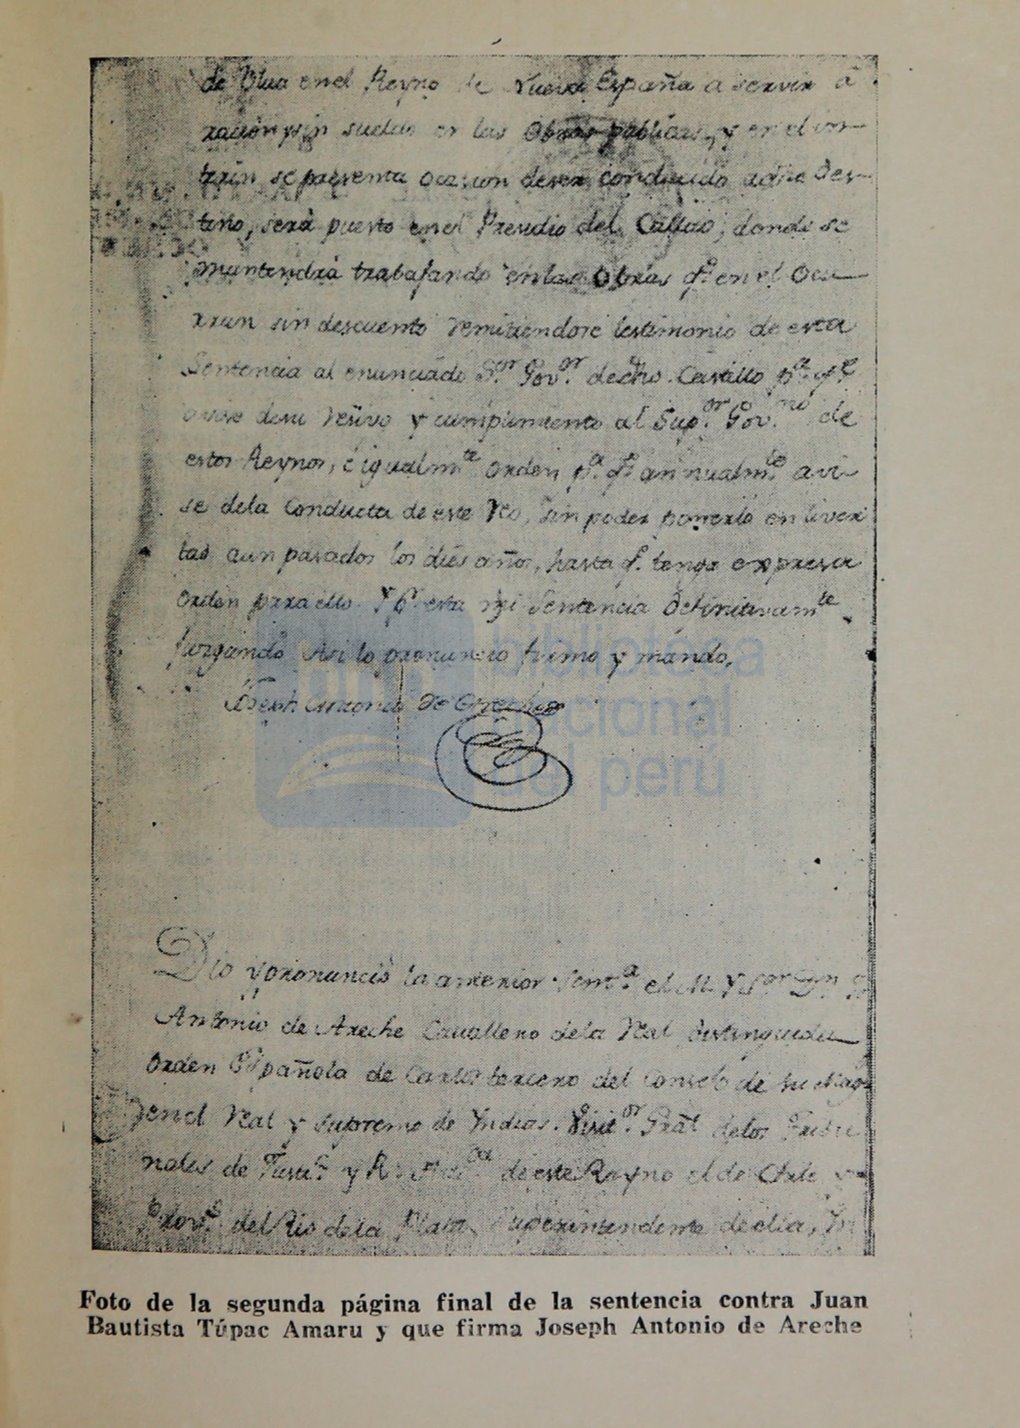 de Ulua en el Reyno de Nueva España a servir à
ración y sin sueldo en las Obras públicas, y en el in-
terin se presenta ocasion deser conducido adho Des-
tino, será puesto en el Presidio del Callao, donde se
mantendrá trabajando en las Obras qe. en el Ocu-
rran sin descuento remitiendose testimonio de esta
Sentencia al enunciado Sor. Govor. de dho. Castillo pa. qe.
de su reciivo y cumplimiento al Supor. Govno. de
estos Reynos, è igualmte. orden pa. qe. annualmte. avi-
se dela Conducta de este Reo, sin poder ponerlo en liver
tad aun pasados los diés años, hasta qe. tenga expresa
orden para ello. Y pr. esta mi Sentencia definitivamte.
juzgando Asi lo pronuncio firmo y mando.
Joseph Antonio de Areche
Dio y pronunciò la anterior Senta. el M. Y. Sor. Dn. J.
Antonio de Areche Cavallero dela Real distinguida
Orden Española de Carlos tercero del Consejo de su Mag.
en el Real y Supremo de Yndias. Visitor. Gral delos Tribu
nales de Justa. y Rl. Hacda. de este Reyno el de Chile y
Provs. del Rio dela Plata, Superintendente de ella, In
biblioteca
nacional
del perú
Foto de la segunda página final de la sentencia contra Juan
Bautista Túpac Amaru y que firma Joseph Antonio de Areche